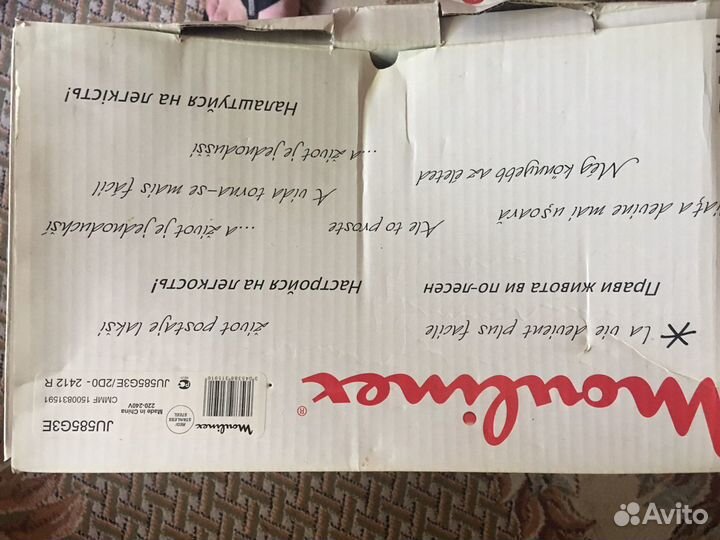 JU585G3E
CMMF 1500831591
JU585G3E/2D0 - 2412 R
Made in China
220-240V
RED/
STAINLESS
STEEL
Moulinex
Moulinex®
* La vie devient plus facile
život postaje lakši
Прави живота ви по-лесен
Настройся на легкость!
a devine mai ușoară
Ale to proste
...a život je jednoduchší
Még könnyebb az életed
A vida torna-se mais fácil
...a život je jednodušší
Налаштуйся на легкість!
Avito